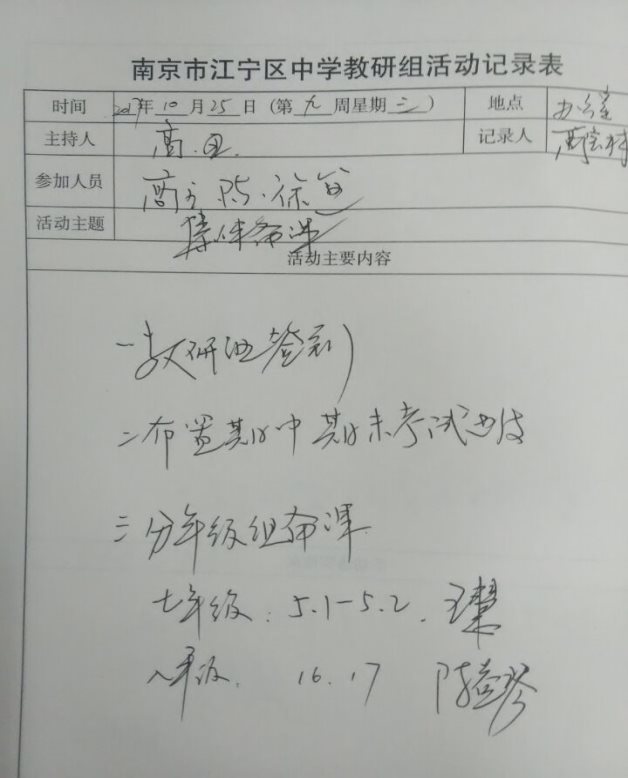 南京市江宁区中学教研组活动记录表
时间 2017年10月25日（第九周星期三） 地点 办公室
主持人 高 记录人
参加人员 高 陈 徐
活动主题 集体备课
活动主要内容
一 教研组签到
二 布置期中期末考试
三 分年级组备课
七年级：5.1-5.2. 王慧
八年级. 16.17 陈